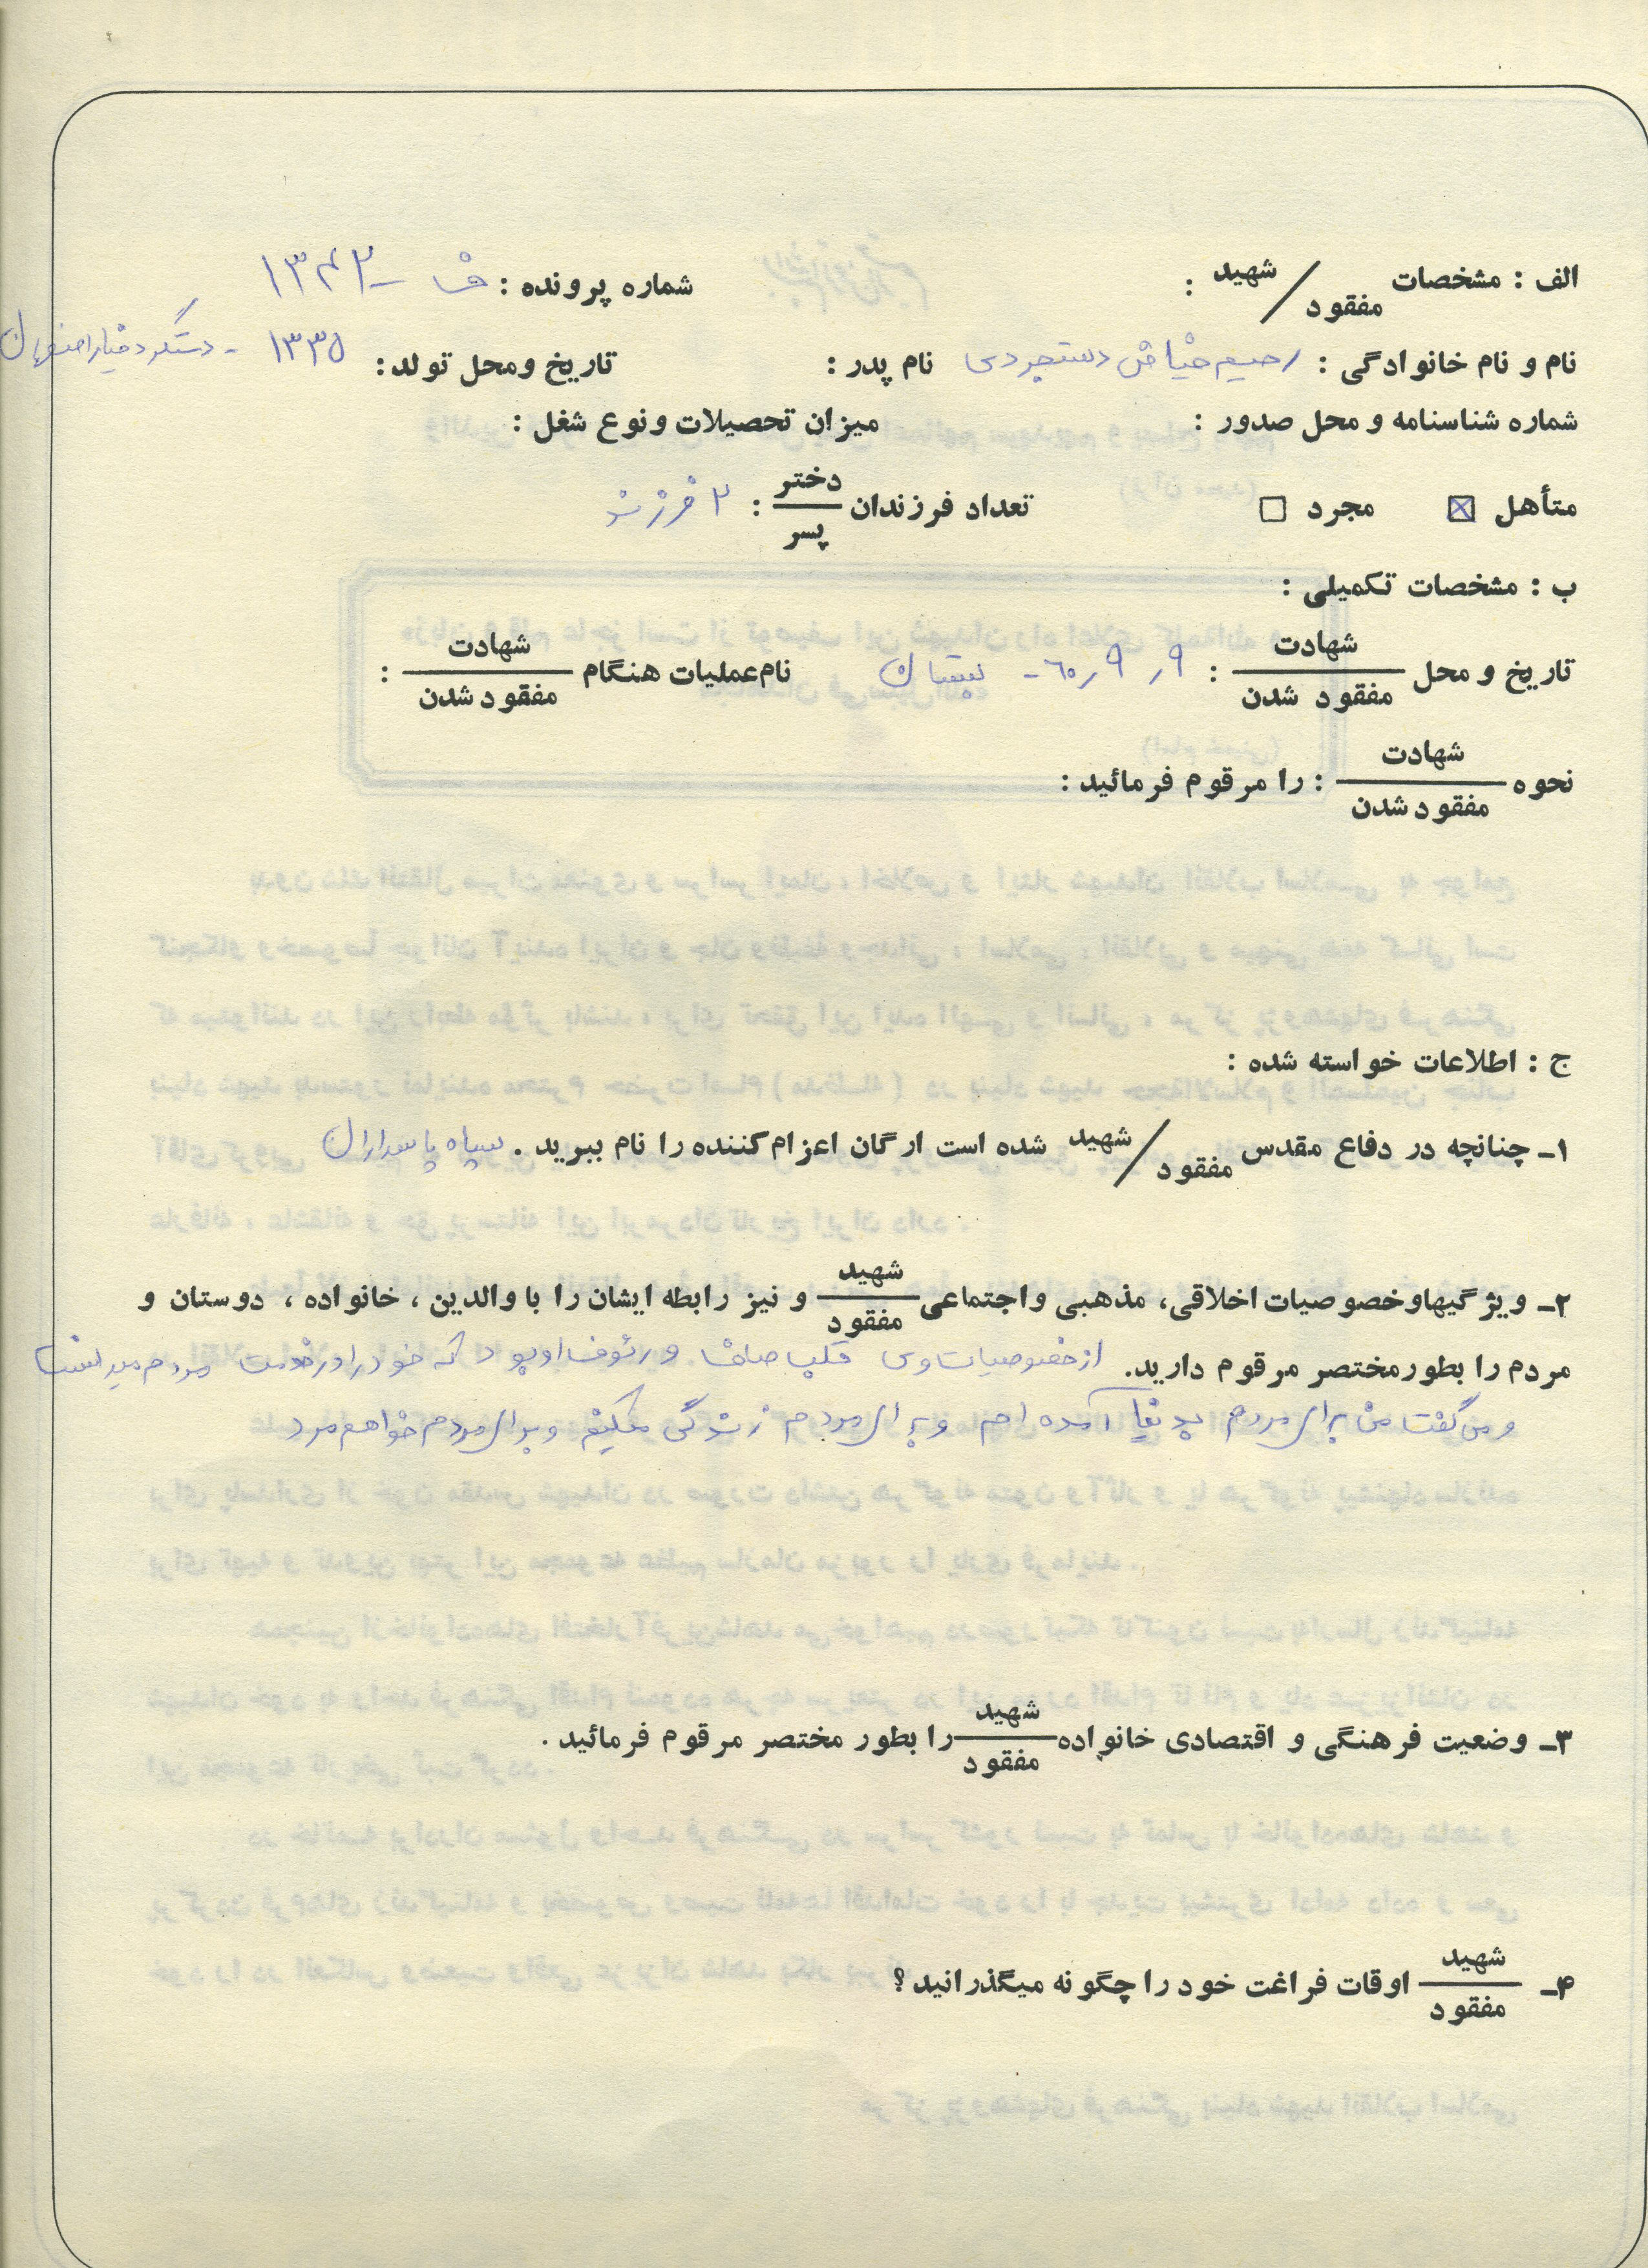 الف : مشخصات شهید / مفقود : شماره پرونده : ف - ۱۳۴۲
نام و نام خانوادگی : رحیم خیاض دستجردی نام پدر : تاریخ ومحل تولد : ۱۳۳۵ - دستگرد خیار اصفهان
شماره شناسنامه و محل صدور : میزان تحصیلات ونوع شغل :
متأهل ☒ مجرد ☐ تعداد فرزندان دختر / پسر : ۲ فرزند
ب : مشخصات تکمیلی :
تاریخ و محل شهادت / مفقود شدن : ۹ر۹ر۶۰ - نام عملیات هنگام شهادت / مفقود شدن :
نحوه شهادت / مفقود شدن : را مرقوم فرمائید :
ج : اطلاعات خواسته شده :
۱- چنانچه در دفاع مقدس شهید / مفقود شده است ارگان اعزام کننده را نام ببرید . سپاه پاسداران
۲- ویژگیهاوخصوصیات اخلاقی، مذهبی واجتماعی شهید / مفقود و نیز رابطه ایشان را با والدین ، خانواده ، دوستان و
مردم را بطورمختصر مرقوم دارید. از خصوصیات وی قلب صاف و رئوف او بود که خود را در خدمت مردم میدانست
و می گفت من برای مردم بدنیا آمده ام و برای مردم زندگی میکنم و برای مردم خواهم مرد
۳- وضعیت فرهنگی و اقتصادی خانواده شهید / مفقود را بطور مختصر مرقوم فرمائید .
۴- شهید / مفقود اوقات فراغت خود را چگونه میگذرانید ؟